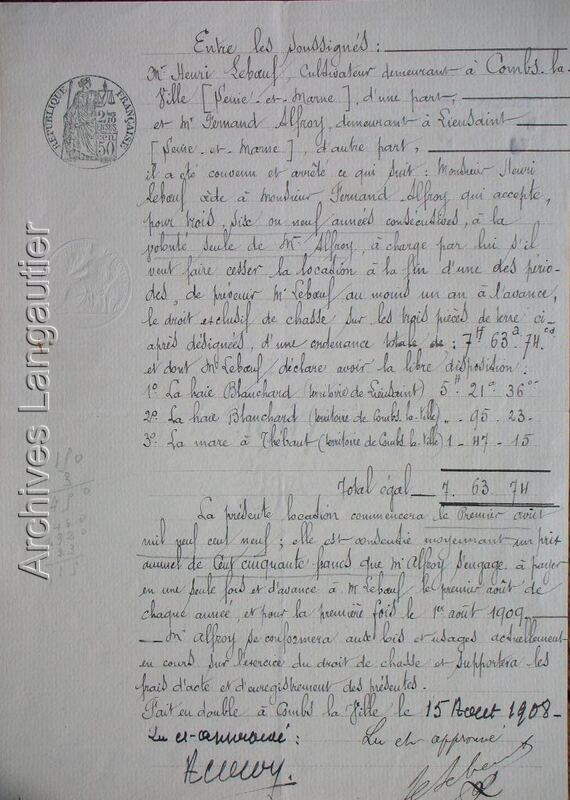 Entre les soussignés :
Mr Henri Lebœuf, Cultivateur demeurant à Combs-la-
Ville [Seine-et-Marne], d'une part,
et Mr Fernand Alfroy, demeurant à Lieusaint
[Seine-et-Marne], d'autre part,
il a été convenu et arrêté ce qui suit : Monsieur Henri
Lebœuf cède à Monsieur Fernand Alfroy qui accepte,
pour trois, six ou neuf années consécutives, à la
volonté seule de Mr Alfroy, à charge par lui s'il
veut faire cesser la location à la fin d'une des pério-
des, de prévenir Mr Lebœuf au moins un an à l'avance,
le droit exclusif de chasse sur les trois pièces de terre ci-
après désignées, d'une contenance totale de : 7H 63a 74ca
et dont Mr Lebœuf déclare avoir la libre disposition :
1o La haie Blanchard (territoire de Lieusaint) 5H 21a 36ca
2o La haie Blanchard (territoire de Combs-la-Ville) " 95 - 23 -
3o La mare à Thébaut (territoire de Combs-la-Ville) 1 - 47 - 15
Total égal 7. 63 74
La présente location commencera le Premier août
mil neuf cent neuf ; elle est consentie moyennant un prix
annuel de Cent cinquante francs que Mr Alfroy s'engage à payer
en une seule fois et d'avance à Mr Lebœuf le premier août de
chaque année, et pour la première fois le 1er août 1909
Mr Alfroy se conformera aux lois et usages actuellement
en cours sur l'exercice du droit de chasse et supportera les
frais d'acte et d'enregistrement des présentes.
Fait en double à Combs la Ville le 15 Aout 1908-
Lu et approuvé : Lu et approuvé
RÉPUBLIQUE FRANÇAISE
Archives Langautier